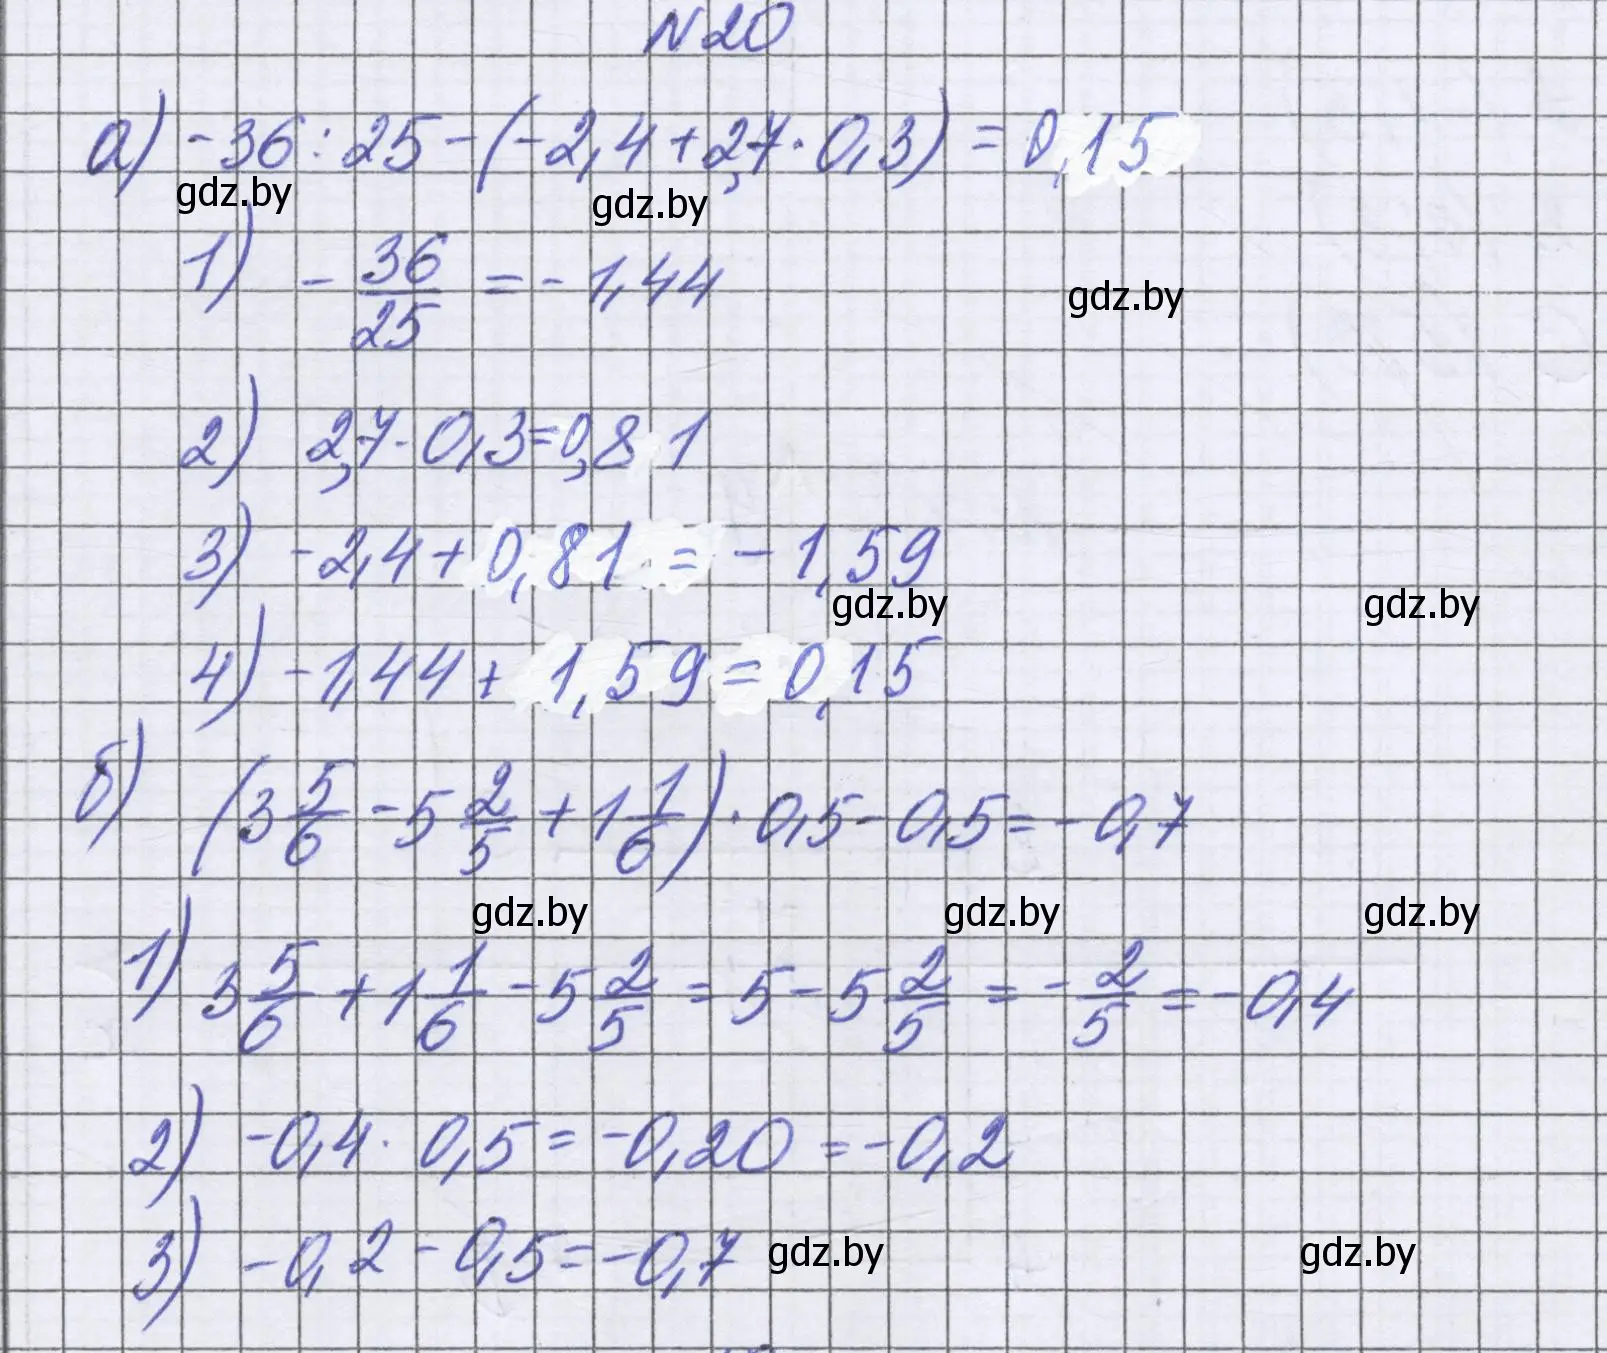 N20
а) -36 : 25 - (-2,4 + 2,7 · 0,3) = 0,15
gdz.by gdz.by
1) - 36/25 = - 1,44
gdz.by
2) 2,7 · 0,3 = 0,81
3) -2,4 + 0,81 = - 1,59
gdz.by gdz.by
4) -1,44 + 1,59 = 0,15
б) (3 5/6 - 5 2/5 + 1 1/6) · 0,5 - 0,5 = - 0,7
gdz.by gdz.by gdz.by
1) 3 5/6 + 1 1/6 - 5 2/5 = 5 - 5 2/5 = - 2/5 = - 0,4
2) -0,4 · 0,5 = -0,20 = -0,2
3) -0,2 - 0,5 = -0,7
gdz.by gdz.by